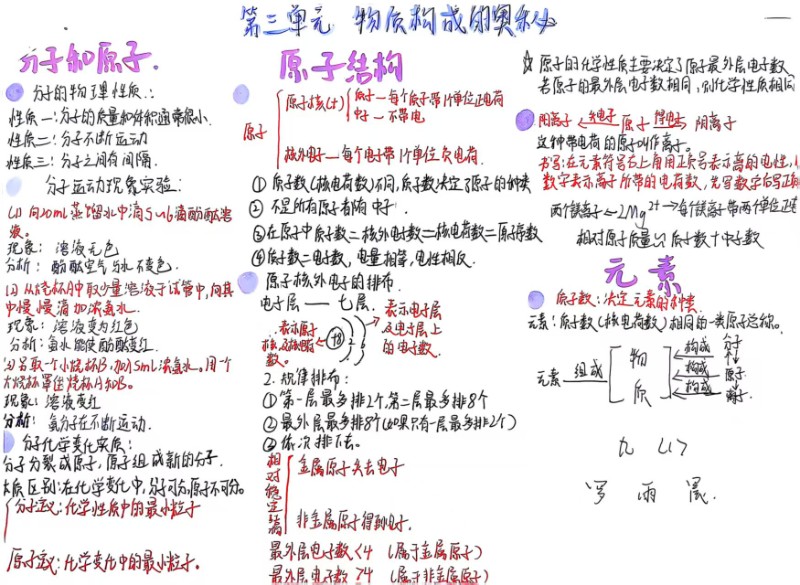 第三单元 物质构成的奥秘
分子和原子.
分子的物理性质.:
性质一:分子的质量和体积通常很小.
性质二:分子不断运动
性质三:分子之间有间隔.
分子运动现象实验:
(1) 向20mL蒸馏水中滴5~6滴酚酞溶
液。
现象: 溶液无色
分析: 酚酞空气与水不变色.
(2) 从烧杯A中取少量溶液于试管中,向其
中慢慢滴加浓氨水.
现象: 溶液变为红色
分析:氨水能使酚酞变红.
(3)另取一个小烧杯B,加入5mL浓氨水。用一个
大烧杯罩住烧杯A和B。
现象:溶液变红
分析: 氨分子在不断运动.
分子化学变化实质:
分子分裂成原子,原子组成新的分子.
本质区别:在化学变化中,分子可分,原子不可分。
分子定义:化学性质中的最小粒子
原子定义:化学变化中的最小粒子.
原子结构
原子
原子核(+)
质子—每个质子带1个单位正电荷
中子—不带电
核外电子—每个电子带1个单位负电荷.
① 质子数(核电荷数)不同,质子数决定了原子的种类
② 不是所有原子都有中子.
③在原子中质子数=核外电子数=核电荷数=原子序数
④质子数=电子数,电量相等,电性相反.
原子核外电子的排布.
电子层——七层.
表示原子
核及核电荷
数。
+8
2
表示电子层
及电子层上
的电子数.
2. 规律排布:
①第一层最多排2个,第二层最多排8个
②最外层最多排8个(如果只有一层最多排2个)
③依次排下去。
相对稳定结构
金属原子失去电子
非金属原子得到电子.
最外层电子数<4 (属于金属原子)
最外层电子数>4 (属于非金属原子)
☆ 原子的化学性质主要决定了原子最外层电子数
若原子的最外层电子数相同,则化学性质相同
阳离子 ← 失电子 原子 得电子 → 阴离子
这种带电荷的原子叫作离子。
书写:在元素符号右上角用正负号表示离的电性,
数字表示离子所带的电荷数,先写数字后写正
两个镁离子←2Mg²⁺→每个镁离子带两个单位正
相对原子质量≈质子数+中子数
元素
质子数:决定元素的种类.
元素:质子数(核电荷数)相同的一类原子总称.
元素 组成
物
质
构成 分子
构成 原子
构成 离子